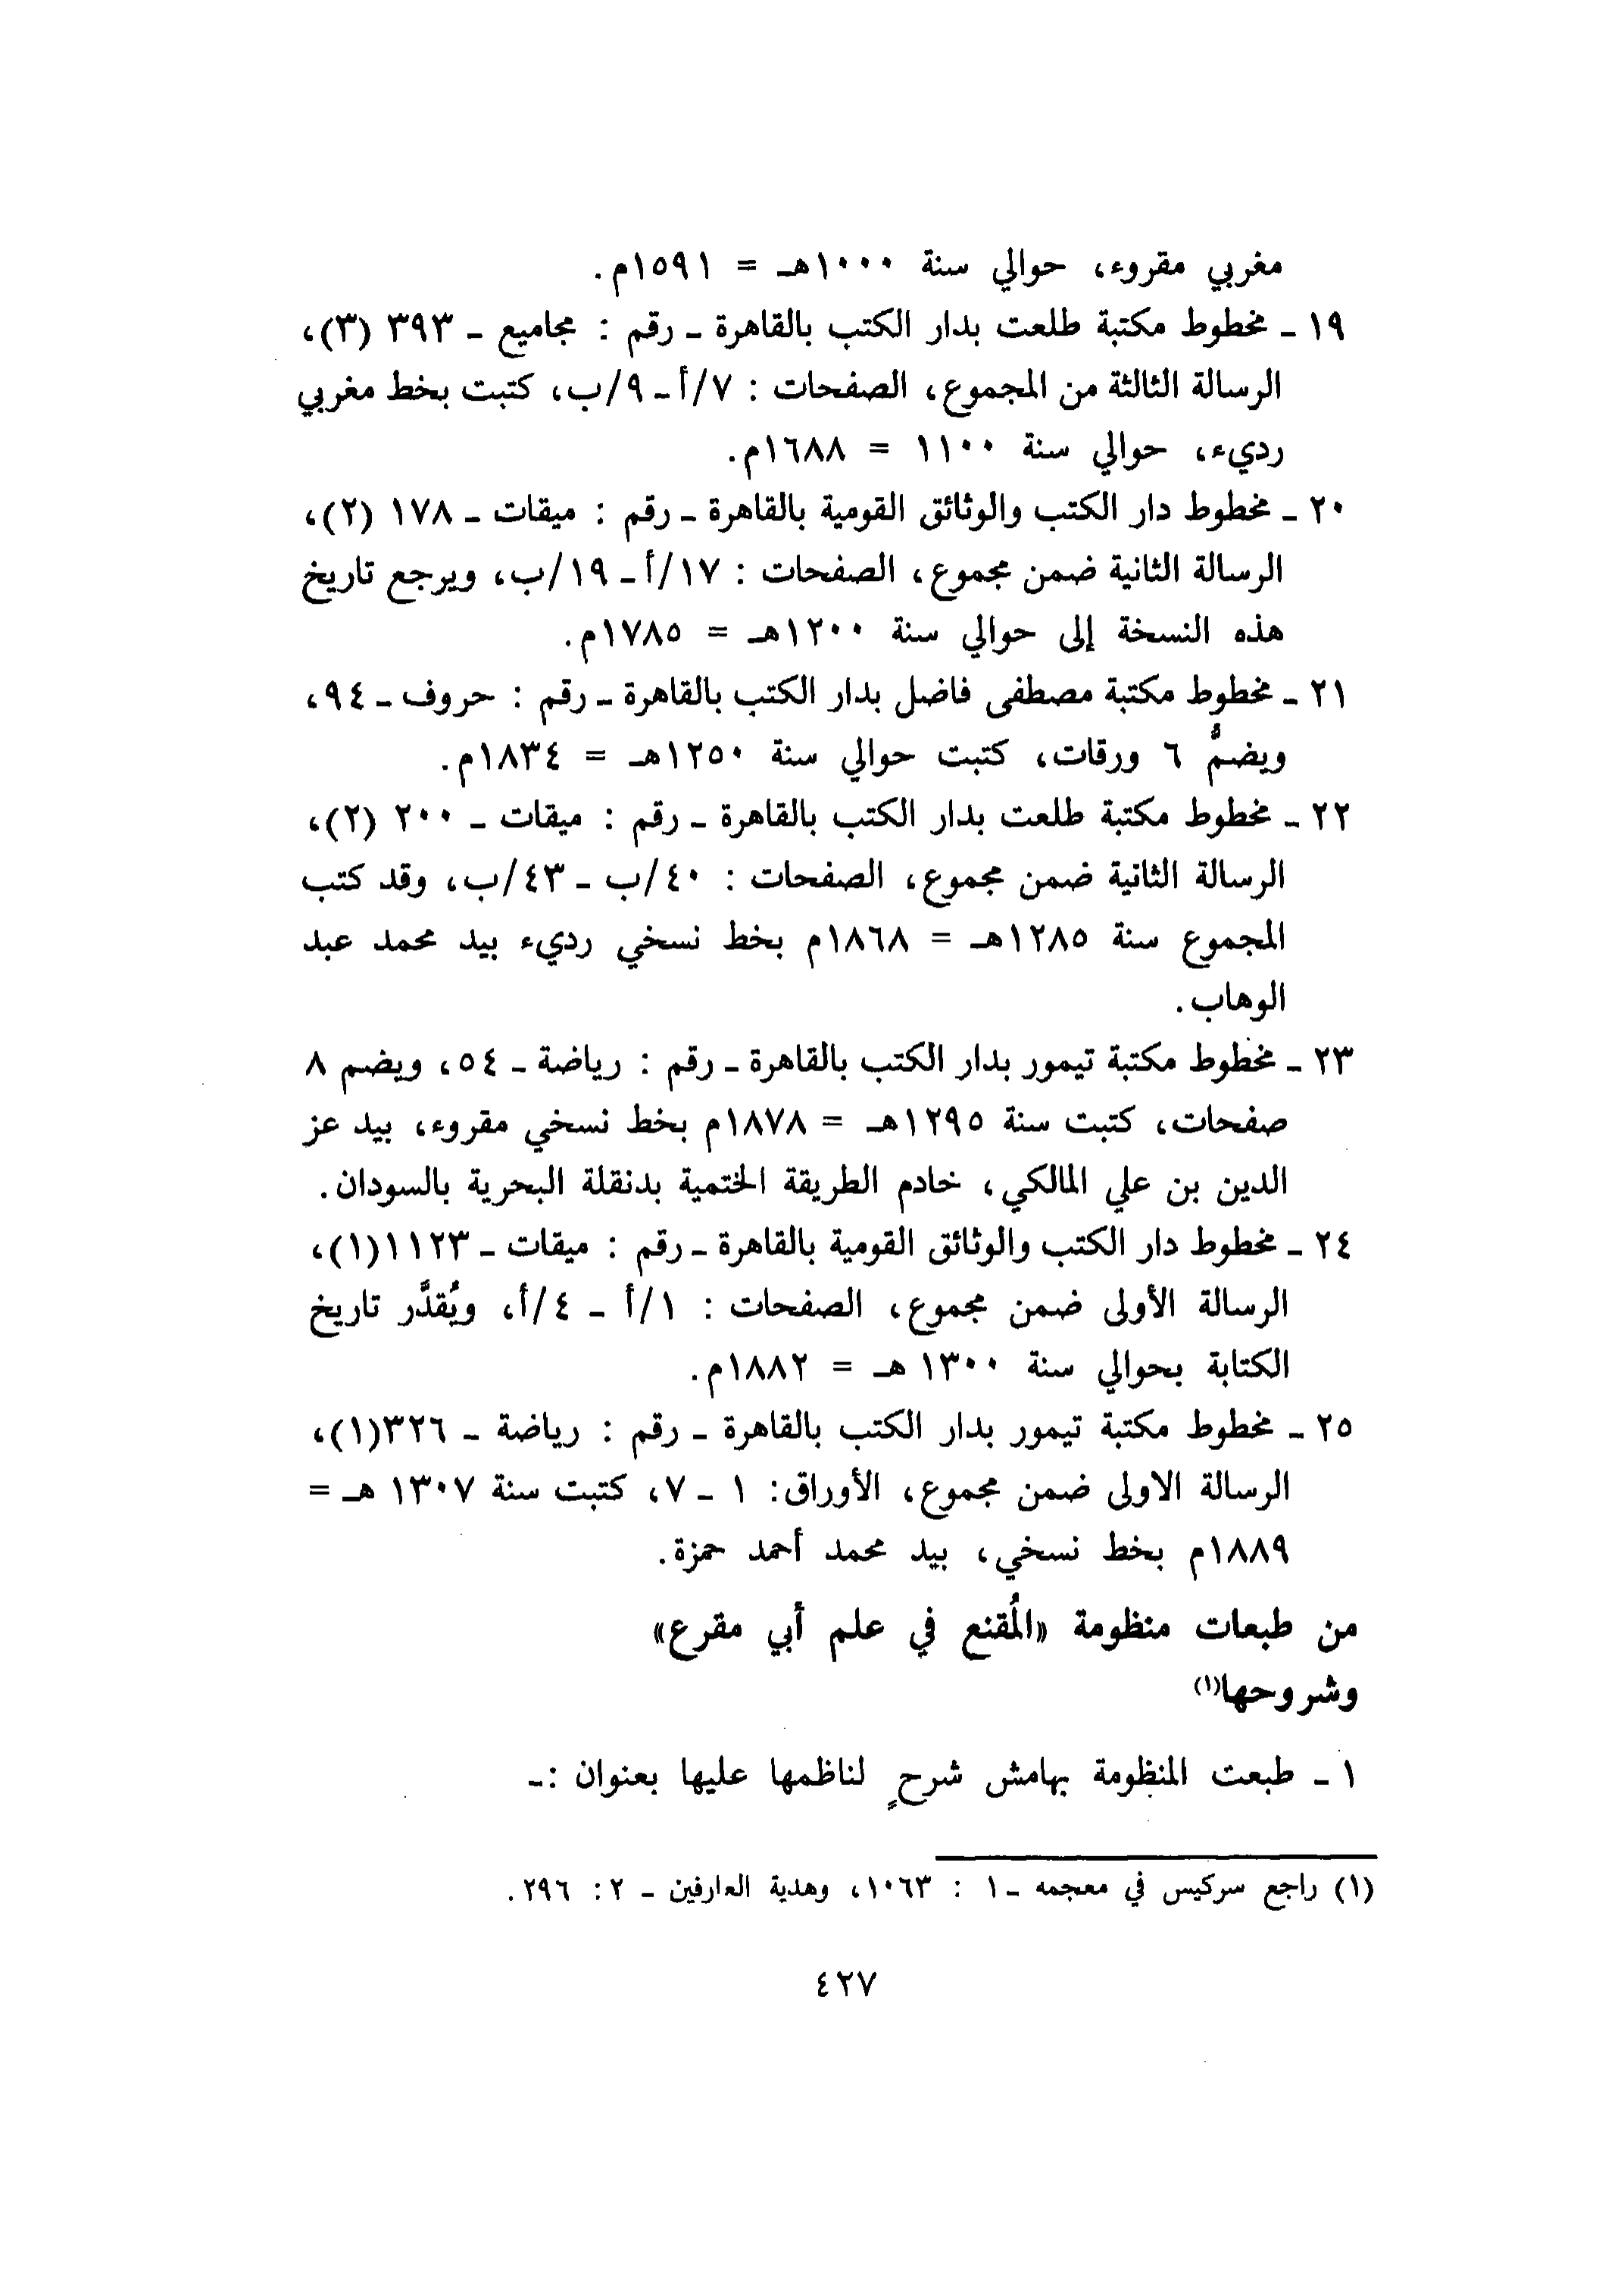 مغربي مقروء، حوالي سنة ١٠٠٠هـ = ١٥٩١م.
١٩ - مخطوط مكتبة طلعت بدار الكتب بالقاهرة - رقم : مجاميع - ٣٩٣ (٣)،
الرسالة الثالثة من المجموع، الصفحات : ٧/أ - ٩/ب، كتبت بخط مغربي
رديء، حوالي سنة ١١٠٠ = ١٦٨٨م.
٢٠ - مخطوط دار الكتب والوثائق القومية بالقاهرة - رقم : ميقات - ١٧٨ (٢)،
الرسالة الثانية ضمن مجموع، الصفحات : ١٧/أ - ١٩/ب، ويرجع تاريخ
هذه النسخة إلى حوالي سنة ١٢٠٠هـ = ١٧٨٥م.
٢١ - مخطوط مكتبة مصطفى فاضل بدار الكتب بالقاهرة - رقم : حروف - ٩٤،
ويضمُّ ٦ ورقات، كتبت حوالي سنة ١٢٥٠هـ = ١٨٣٤م.
٢٢ - مخطوط مكتبة طلعت بدار الكتب بالقاهرة - رقم : ميقات - ٢٠٠ (٢)،
الرسالة الثانية ضمن مجموع، الصفحات : ٤٠/ب - ٤٣/ب، وقد كتب
المجموع سنة ١٢٨٥هـ = ١٨٦٨م بخط نسخي رديء بيد محمد عبد
الوهاب.
٢٣ - مخطوط مكتبة تيمور بدار الكتب بالقاهرة - رقم : رياضة - ٥٤، ويضم ٨
صفحات، كتبت سنة ١٢٩٥هـ = ١٨٧٨م بخط نسخي مقروء، بيد عز
الدين بن علي المالكي، خادم الطريقة الختمية بدنقلة البحرية بالسودان.
٢٤ - مخطوط دار الكتب والوثائق القومية بالقاهرة - رقم : ميقات - ١١٢٣(١)،
الرسالة الأولى ضمن مجموع، الصفحات : ١/أ - ٤/أ، ويُقدَّر تاريخ
الكتابة بحوالي سنة ١٣٠٠ هـ = ١٨٨٢م.
٢٥ - مخطوط مكتبة تيمور بدار الكتب بالقاهرة - رقم : رياضة - ٣٢٦(١)،
الرسالة الاولى ضمن مجموع، الأوراق: ١ - ٧، كتبت سنة ١٣٠٧ هـ =
١٨٨٩م بخط نسخي، بيد محمد أحمد حمزة.
من طبعات منظومة «المُقنع في علم أبي مقرع»
وشروحها(١)
١ - طبعت المنظومة بهامش شرحٍ لناظمها عليها بعنوان :-
(١) راجع سركيس في معجمه - ١ : ١٠٦٣، وهدية العارفين - ٢ : ٢٩٦.
٤٢٧